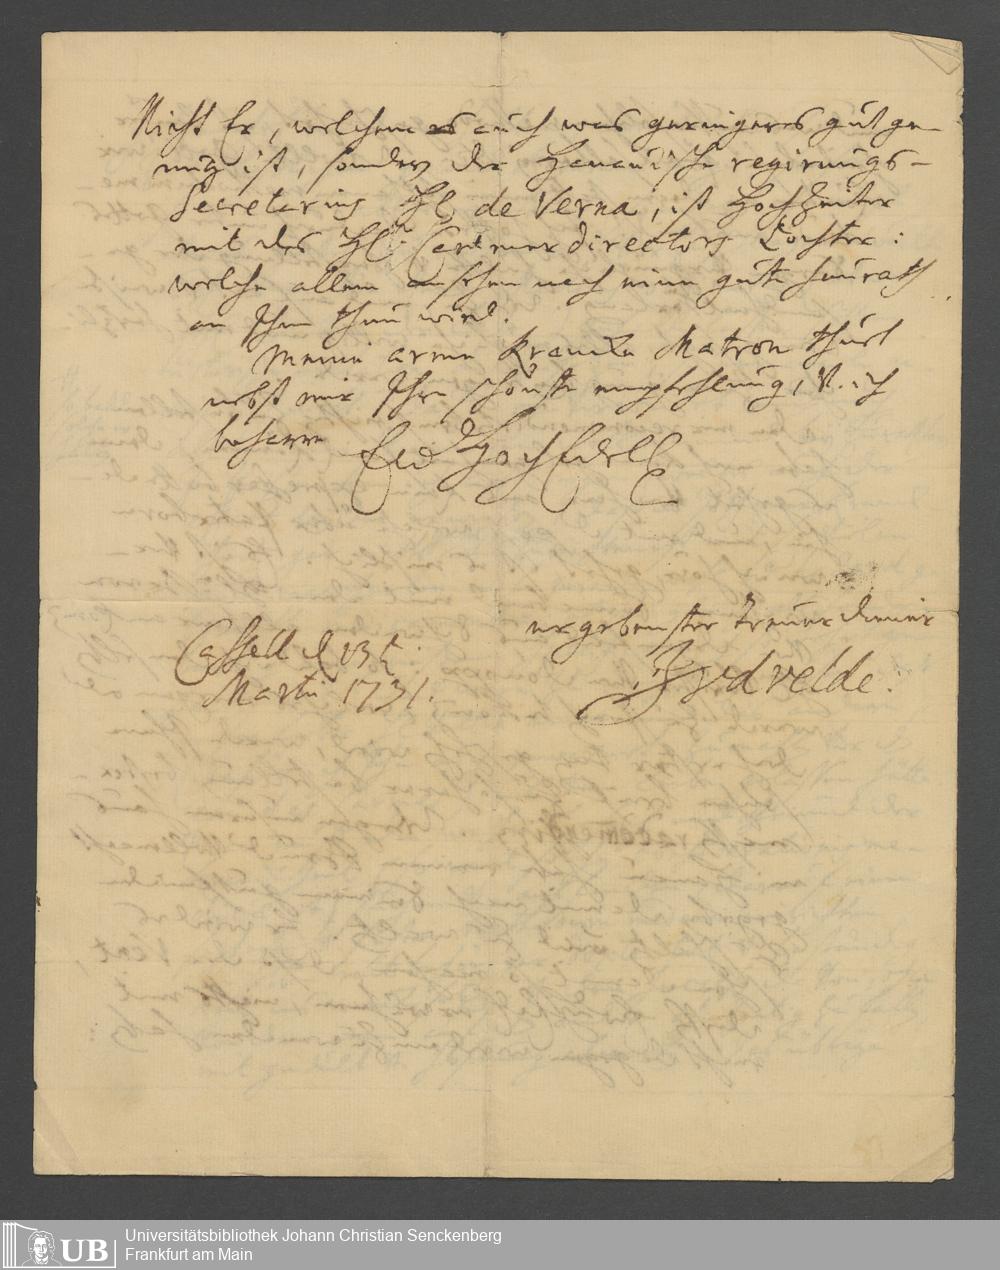 Nicht Er, welchem es auch was geringeres gut ge-
nug ist, sondern der Hanauische regirungs-
Secretarius H. de Verna, ist Hochzeiter
mit des H. Cammerdirectors Tochter:
welche allem ansehen nach eine gute heurath
an Ihm thun wird.
Meine arme Krancke Matron thut
nebst mir Ihre schönste empfehlung, u. ich
beharre
Ew HochEdell
ergebenster treuer diener
JvdVelde.
Cassell d 13t
Martii 1731.
UB
Universitätsbibliothek Johann Christian Senckenberg
Frankfurt am Main